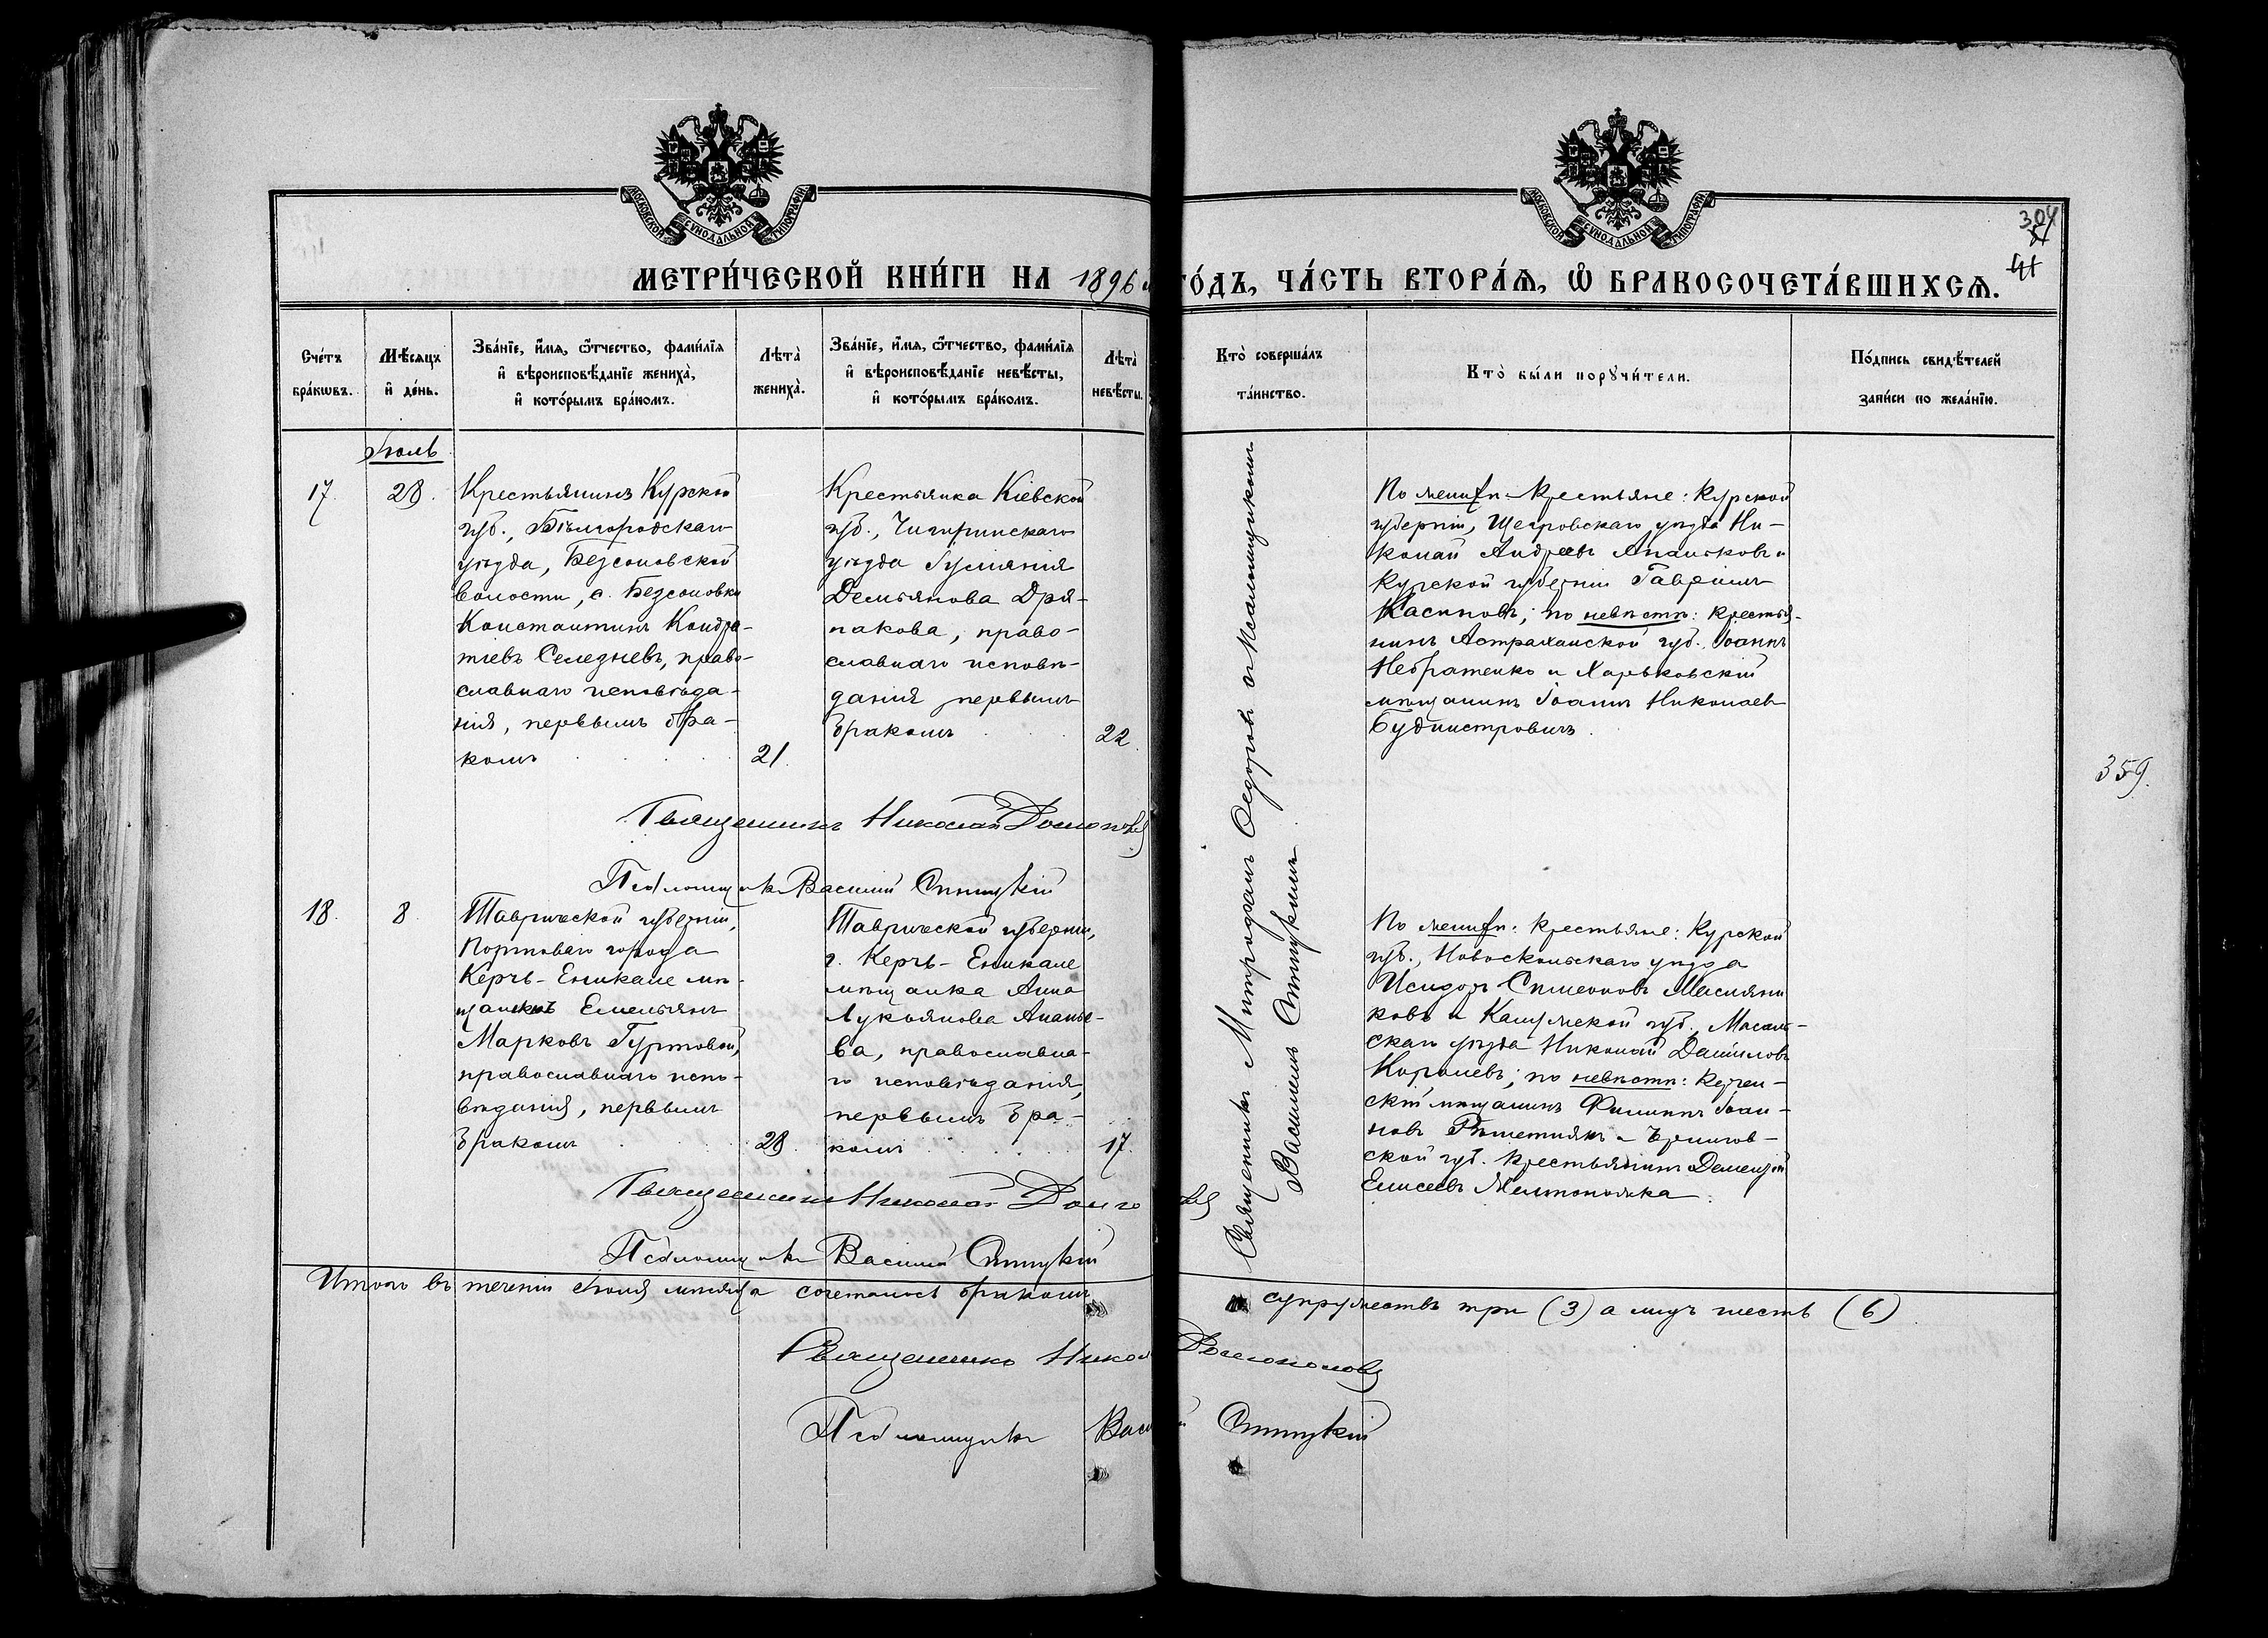 МОСКОВСКОЙ СѴНОДАЛЬНОЙ ТИПОГРАФІИ
МОСКОВСКОЙ СѴНОДАЛЬНОЙ ТИПОГРАФІИ
304
41
МЕТРИ́ЧЕСКОЙ КНИ́ГИ НА 1896 ГО́ДЪ, ЧА́СТЬ ВТОРА́Я, Ѡ҆ БРАКОСОЧЕТА́ВШИХСЯ.
Сче́тъ бра́кѡвъ.
Мѣ́сяцъ и҆ де́нь.
Зва́нїе, и҆́мя, ѻ҆́тчество, фами́лїя
и҆ вѣроисповѣ́данїе жениха̀,
и҆ кото́рымъ бра́комъ.
Лѣта̀ жениха̀.
Зва́нїе, и҆́мя, ѻ҆́тчество, фами́лїя
и҆ вѣроисповѣ́данїе невѣ́сты,
и҆ кото́рымъ бра́комъ.
Лѣта̀ невѣ́сты.
Кто̀ соверша́лъ
та́инство.
Кто̀ бы́ли порꙋчи́тели.
По́дпись свидѣ́телей
за́писи по жела́нїю.
Іюль
17.
28.
Крестьянинъ Курской
губ., Бѣлгородскаго
уѣзда, Безсоновской
волости, с. Безсоновки
Константинъ Кондра-
тіевъ Селезневъ, право-
славнаго исповѣда-
нія, первымъ бра-
комъ
21.
Крестьянка Кіевской
губ., Чигиринскаго
уѣзда Іуліанія
Демьянова Дря-
пакова, право-
славнаго исповѣ-
данія первымъ
бракомъ
22.
Священникъ Митрофанъ Ѳедоровъ съ псаломщикомъ
Василіемъ Ститукимъ
По женихѣ - крестьяне: Курской
губерніи, Щегровскаго уѣзда Ни-
колай Андреевъ Апалковъ и
Курской губерніи Гавріилъ
Касиновъ; по невѣстѣ: крестья-
нинъ Астраханской губ. Іоаннъ
Небратенко и Харьковскій
мѣщанинъ Іоаннъ Николаевъ
Будмистровичъ.
359.
Священникъ Николай
Псаломщикъ Василій
18.
8.
Таврической губерніи,
Портоваго города
Керчь-Еникале мѣ-
щанинъ Емельянъ
Марковъ Гуртовой,
православнаго испо-
вѣданія, первымъ
бракомъ
28.
Таврической губерніи,
г. Керчь-Еникале
мѣщанка Анна
Лукьянова Ананье-
ва, православна-
го исповѣданія,
первымъ бра-
комъ
17.
По женихѣ: крестьяне: Курской
губ., Новоскольскаго уѣзда
Исидоръ Симеоновъ Маслянни
ковъ и Калужской губ., Масаль-
скаго уѣзда Николай Даниловъ
Королевъ; по невѣстѣ: Керчен-
скій мѣщанинъ Филиппъ Іоан-
новъ Рѣшетнякъ и Чернигов-
ской губ. крестьянинъ Дементій
Елисеевъ
Священникъ Николай
Псаломщикъ Василій
Итого въ теченіи Іюля мѣсяца сочеталось бракомъ супружествъ три (3) а лицъ шесть (6)
Священникъ Николай
Псаломщикъ Василій